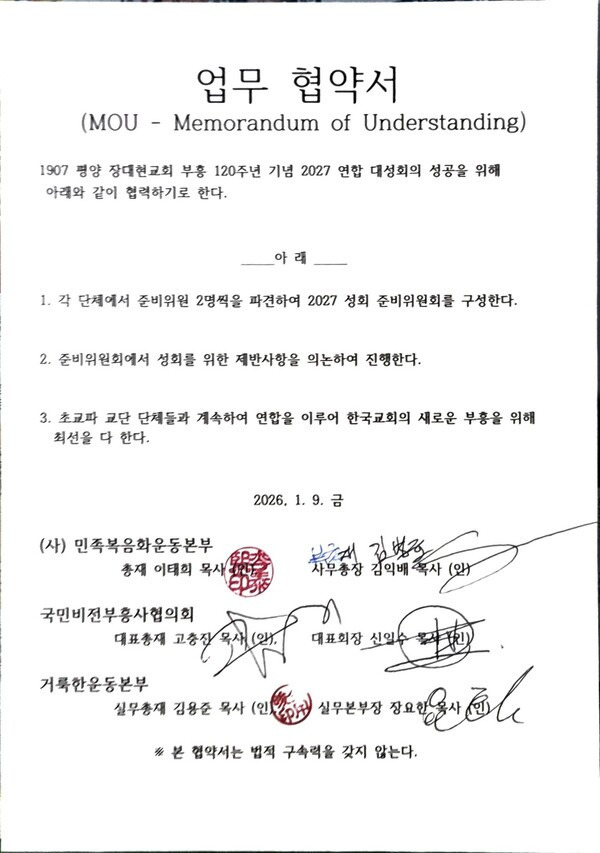 업무 협약서
(MOU - Memorandum of Understanding)
1907 평양 장대현교회 부흥 120주년 기념 2027 연합 대성회의 성공을 위해
아래와 같이 협력하기로 한다.
____아 래 ____
1. 각 단체에서 준비위원 2명씩을 파견하여 2027 성회 준비위원회를 구성한다.
2. 준비위원회에서 성회를 위한 제반사항을 의논하여 진행한다.
3. 초교파 교단 단체들과 계속하여 연합을 이루어 한국교회의 새로운 부흥을 위해
최선을 다 한다.
2026. 1. 9. 금
(사) 민족복음화운동본부
총재 이태희 목사 (인) 사무총장 김익배 목사 (인)
국민비전부흥사협의회
대표총재 고충진 목사 (인). 대표회장 신일수 목사 (인)
거룩한운동본부
실무총재 김용준 목사 (인) 실무본부장 장요한 목사 (인)
※ 본 협약서는 법적 구속력을 갖지 않는다.